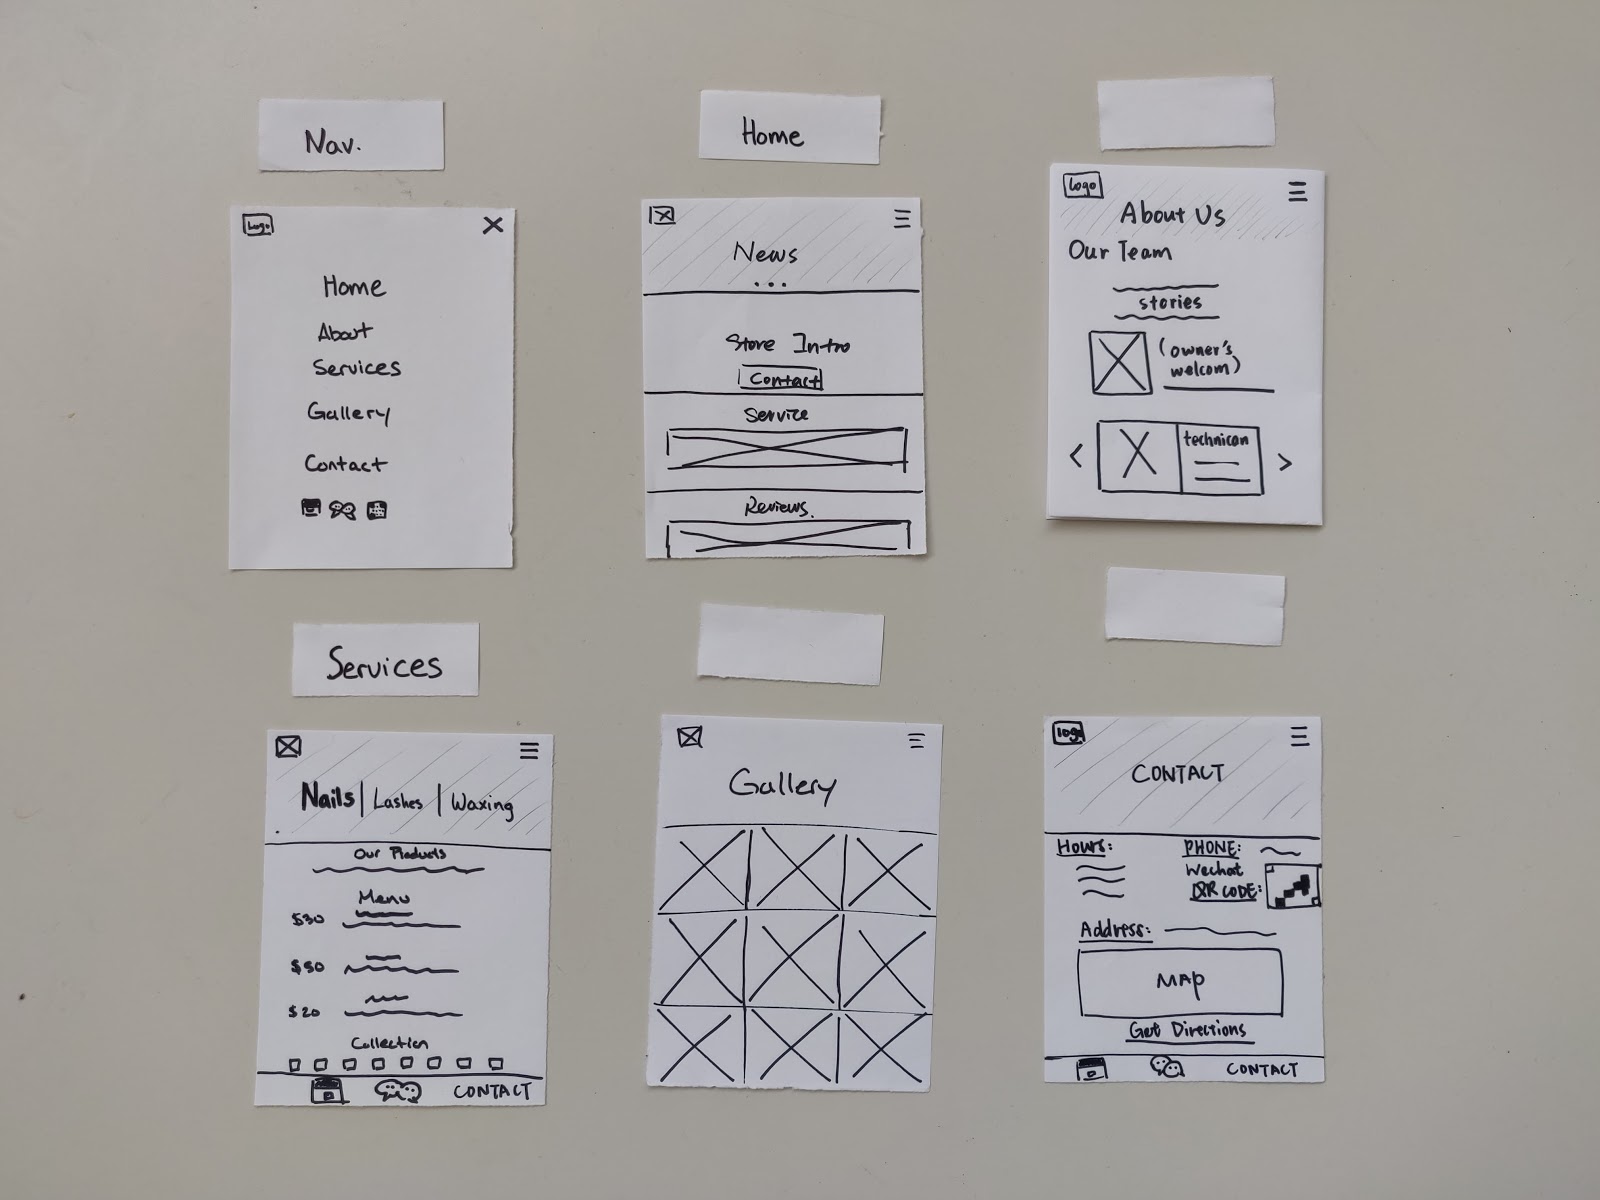 Nav.
Logo
Home
About
Services
Gallery
Contact
Home
News
...
Store Intro
Contact
Service
Reviews.
Logo
About Us
Our Team
stories
(owner's
welcom)
technican
Services
Nails | Lashes | Waxing
Our Products
Menu
$30
$50
$20
Collection
CONTACT
Gallery
logo
CONTACT
Hours:
PHONE:
Wechat
QR CODE:
Address:
MAP
Get Directions
CONTACT